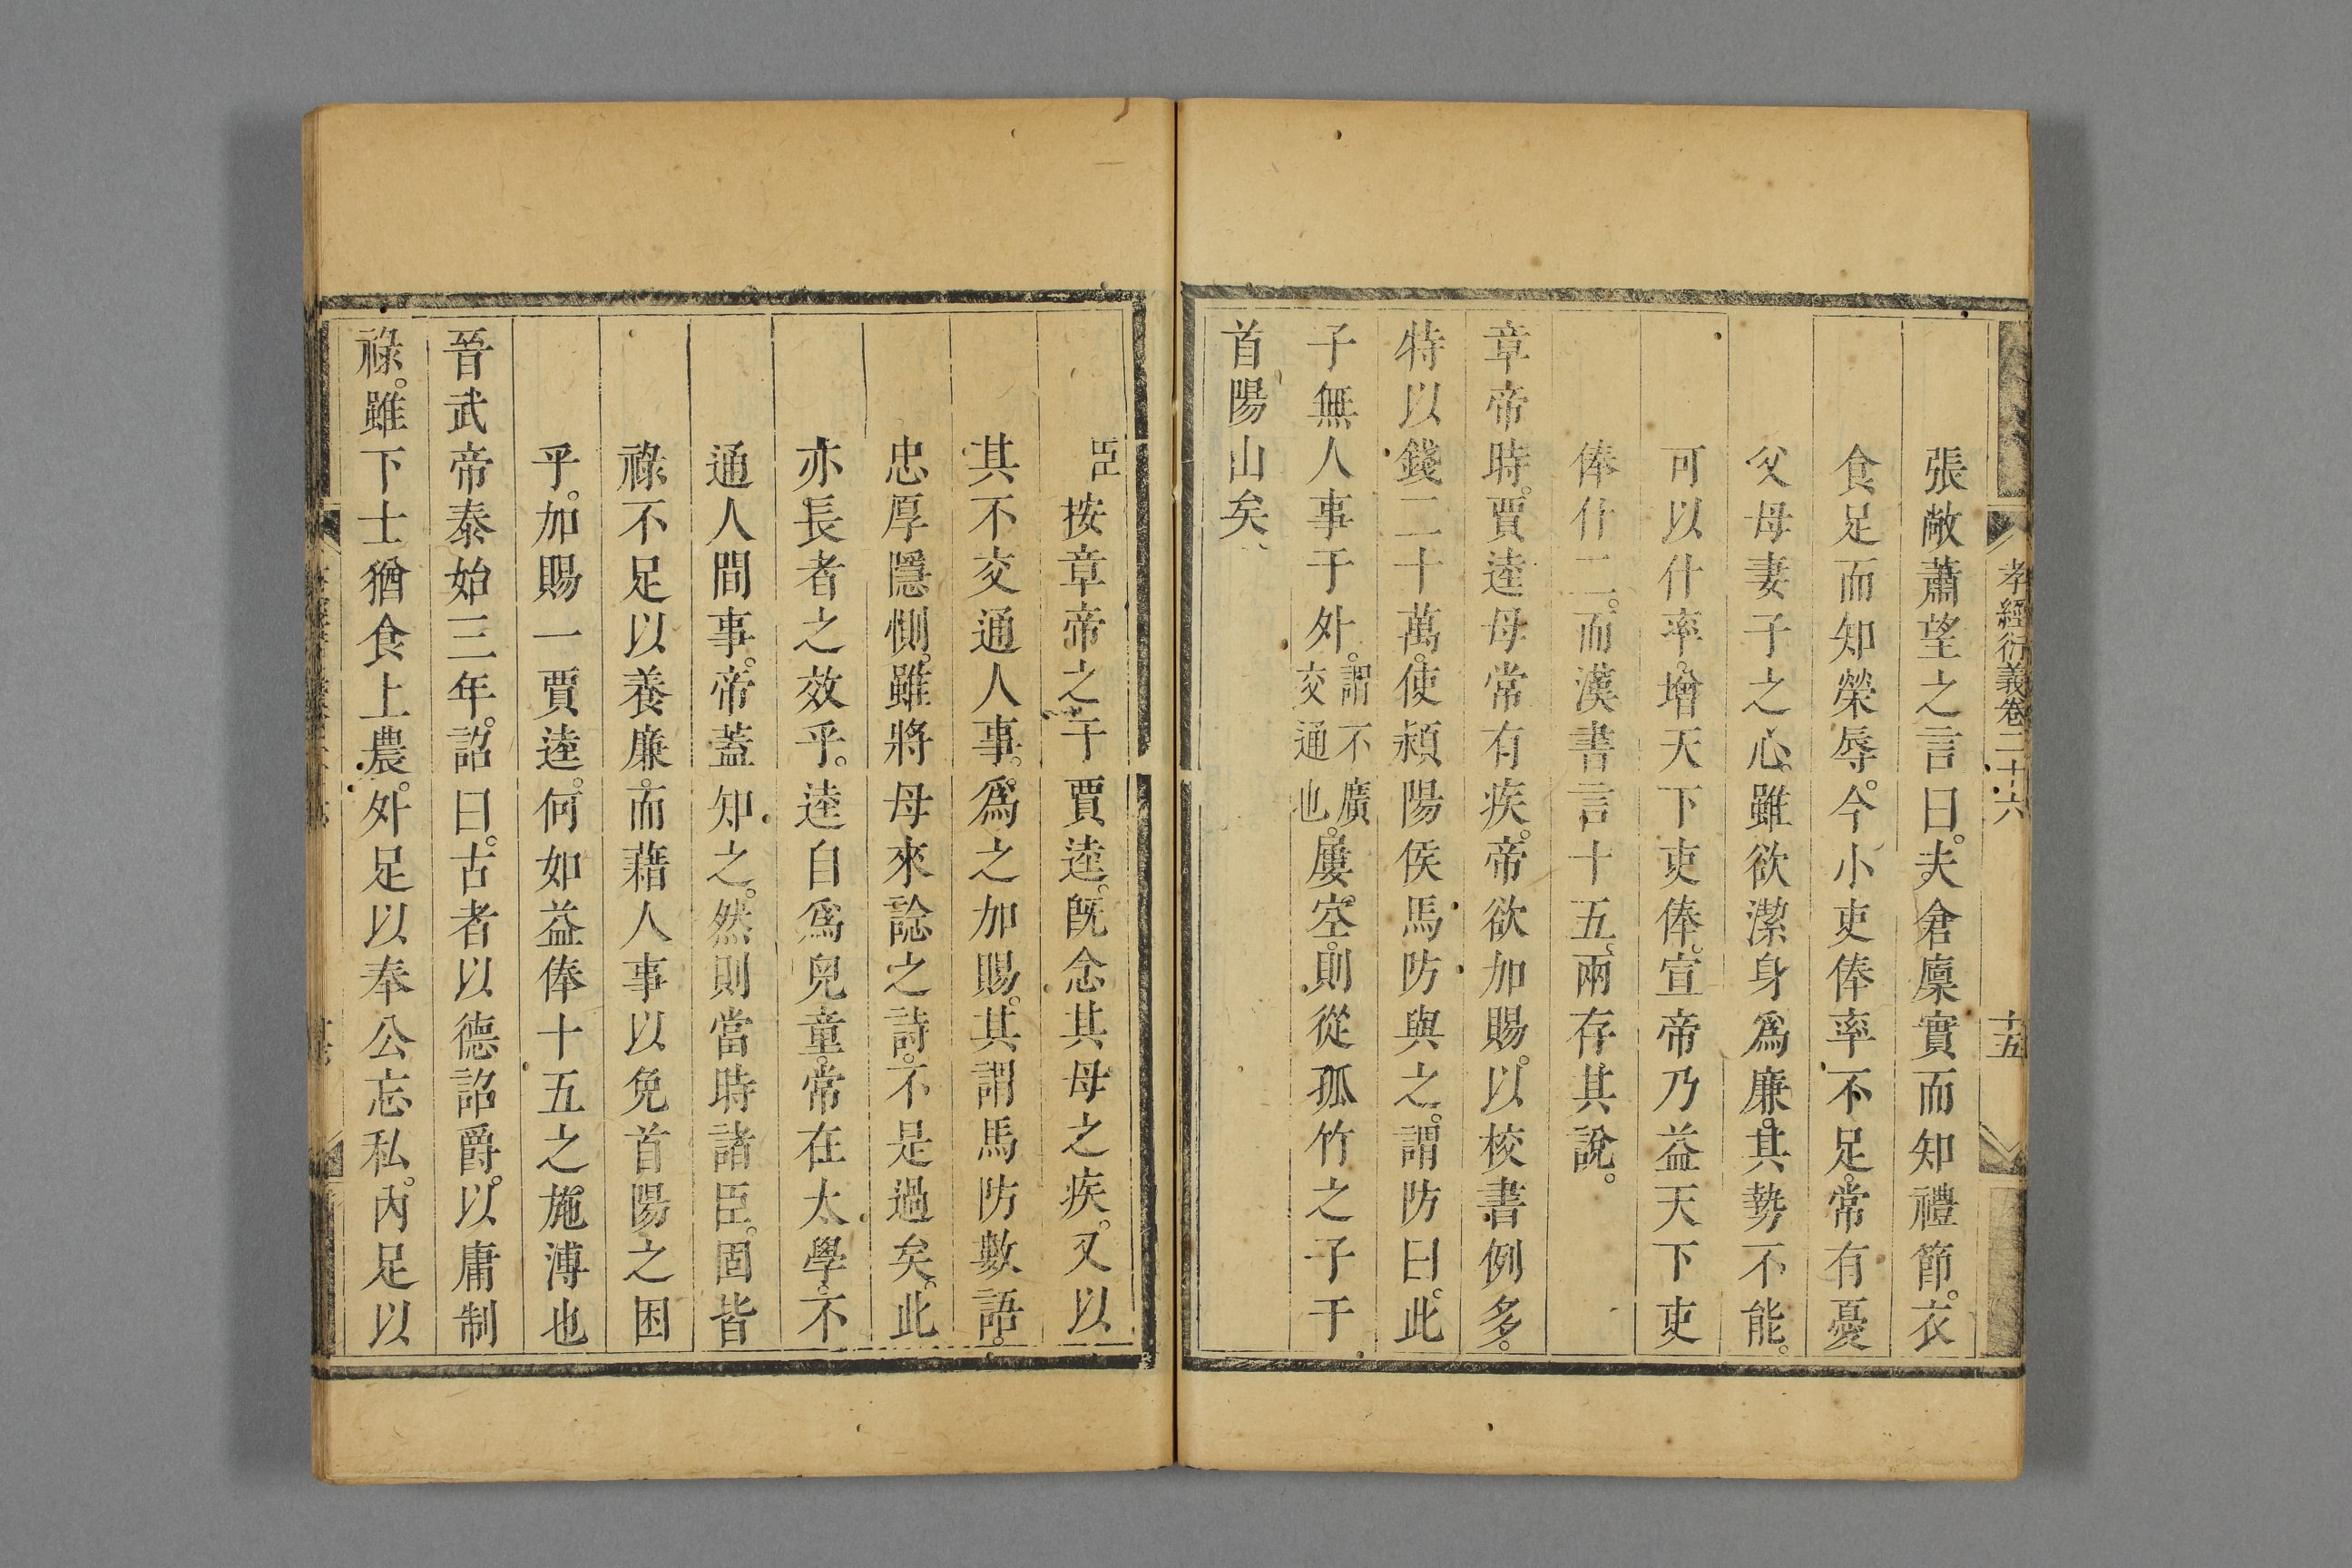 孝經衍義卷二十六
十五
張敞蕭望之言曰。夫倉廩實而知禮節。衣
食足而知榮辱。今小吏俸率不足。常有憂
父母妻子之心。雖欲潔身爲廉。其勢不能。
可以什率。增天下吏俸。宣帝乃益天下吏
俸什二。而漢書言十五。兩存其說。
章帝時。賈逵母常有疾。帝欲加賜。以校書例多。
特以錢二十萬。使潁陽侯馬防與之。謂防曰。此
子無人事于外。謂不廣交通也。屢空。則從孤竹之子于
首陽山矣、
臣按章帝之于賈逵。旣念其母之疾。又以
其不交通人事。爲之加賜。其謂馬防數語。
忠厚隱惻。雖將母來諗之詩。不是過矣。此
亦長者之效乎。逵自爲兒童。常在太學。不
通人間事。帝蓋知之。然則當時諸臣。固皆
祿不足以養廉。而藉人事以免首陽之困
乎。加賜一賈逵。何如益俸十五之施溥也
晉武帝泰始三年。詔曰。古者以德詔爵。以庸制
祿。雖下士猶食上農。外足以奉公忘私。內足以